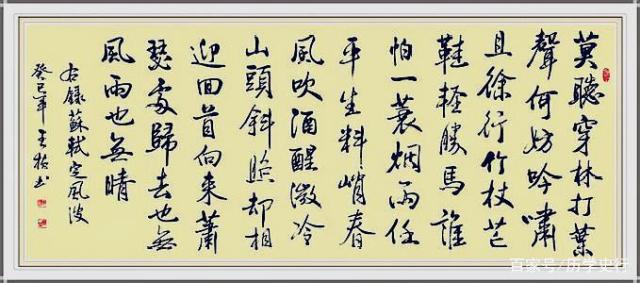 莫聽穿林打葉
聲何妨吟嘯
且徐行竹杖芒
鞋輕勝馬誰
怕一蓑烟雨任
平生料峭春
風吹酒醒微冷
山頭斜照却相
迎回首向來蕭
瑟處歸去也無
風雨也無晴
右録蘇軾定風波
癸巳年王书
百家号/历学史行